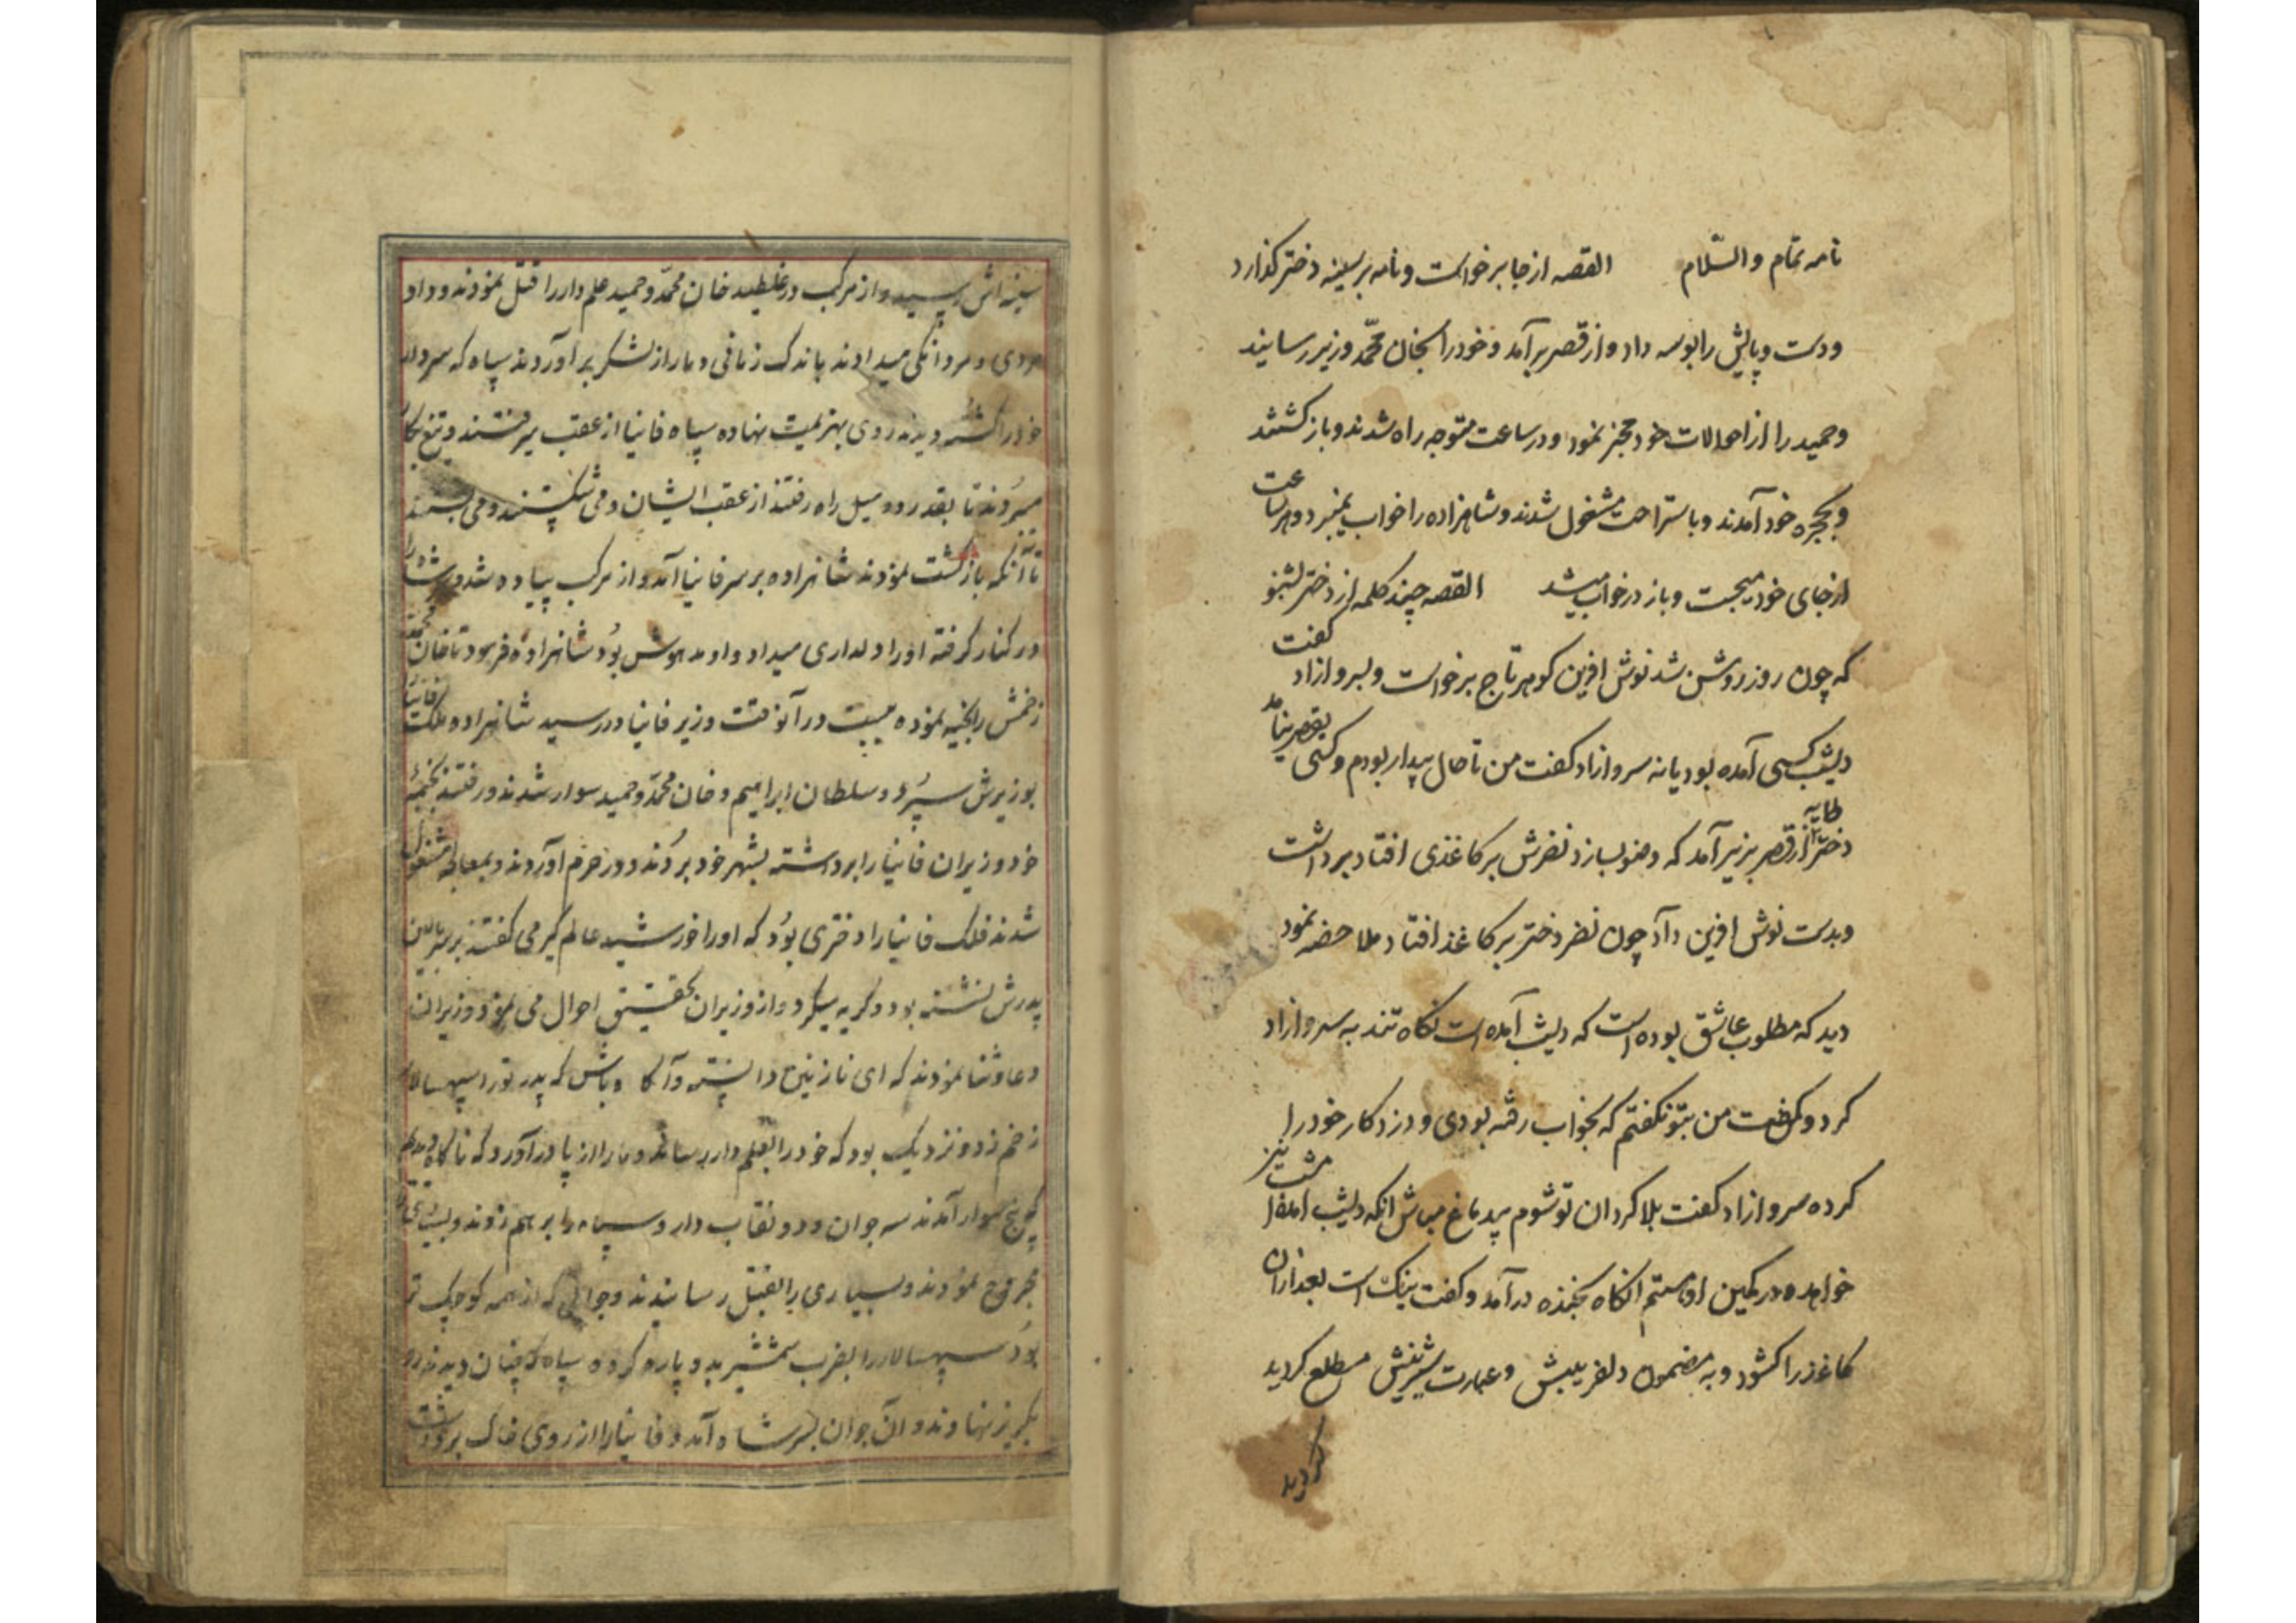 نامه تمام والسّلام القصه از جا برخواست و نامه بر سینه دختر گذارد
و دست و پایش را بوسه داد و از قصر برآمد و خود را بخان محمّد وزیر رسانید
و حمید را از احوالات خود مخبر نمود و در ساعت متوجه راه شدند و باز گشتند
و بحجره خود آمدند و باستراحت مشغول شدند و شاهزاده را خواب نمیبرد و هر ساعت
از جای خود میجست و باز در خواب میشد القصه چند کلمه از دختر بشنو
که چون روز روشن شد نوش افرین کوهر تاج برخواست و بسرو ازاد کفت
دیشب کسی آمده بود یا نه سرو ازاد کفت من تا حال بیدار بودم و کسی بقصر نیامد
دایه دختر از قصر بزیر آمد که وضو بسازد نضرش بر کاغذی افتاد برداشت
و بدست نوش افرین داد چون نضر دختر بر کاغذ افتاد ملاحضه نمود
دید که مطلوب عاشق بوده است که دیشب آمده است نکاه تند به سرو ازاد
کرد و کفت من بتو نکفتم که بخواب رفته بودی و دزد کار خود را
کرده سرو ازاد کفت بلا کردان تو شوم بیدماغ مباش انکه دیشب امده امشب نیز
خواهد و در کمین او هستم انکاه بخنده درآمد و کفت نیک است بعد ازان
کاغذ را کشود و به مضمون دلفریبش و عبارت شیرینش مطلع کردید
کردید
سینه اش رسید و از مرکب در غلطید خان محمّد و حمید علم دار را قتل نمودند و داد
مردی و مردانکی میدادند باندک زمانی دمار از لشکر برآوردند سپاه که سردار
خود را کشته دیدند روی بهزیمت نهاده سپاه فانیا از عقب میرفتند و تیغ بکار
میبردند تا بقدر دو میل راه رفتند از عقب ایشان و می کشتند و می بستند
تا آنکه بازکشت نمودند شاهزاده بر سر فانیا آمد و از مرکب پیاده شد و سرش را
در کنار کرفته او را دلداری میداد و او مدهوش بود شاهزاده فرمود تا خان محمّد
زخمش را بخیه نموده ببست در آنوقت وزیر فانیا در رسید شاهزاده ملک فانیا را
بوزیرش سپرد و سلطان ابراهیم و خان محمّد و حمید سوار شدند و رفتند بخیمهٔ
خود وزیران فانیا را برداشته بشهر خود بردند و در حرم آوردند و بمعالجه مشغول
شدند فلک فانیا را دختری بود که او را خورشید عالم گیر می کفتند بر سر بالین
پدرش نشسته بود و کریه میکرد و از وزیران تحقیق احوال می نمود وزیران
دعا و ثنا نمودند که ای نازنین دانسته و آکاه باش که پدر تو را سپهسالار
زخم زد و نزدیک بود که خود را بعلم دار رساند و ما را از پا درآورد که ناکاه دیدیم
که پنج سوار آمدند سه جوان و دو نقاب دار و سپاه را بر هم زدند و بسیاری را
مجروح نمودند و بسیاری را بقتل رسانیدند و جوانی که از همه کوچک تر
بود سپهسالار را بضرب شمشیر بدو پاره کرده سپاه که چنان دیدند رو
بکریز نهادند و آن جوان بسر شاه آمد و فانیا را از روی خاک برداشت